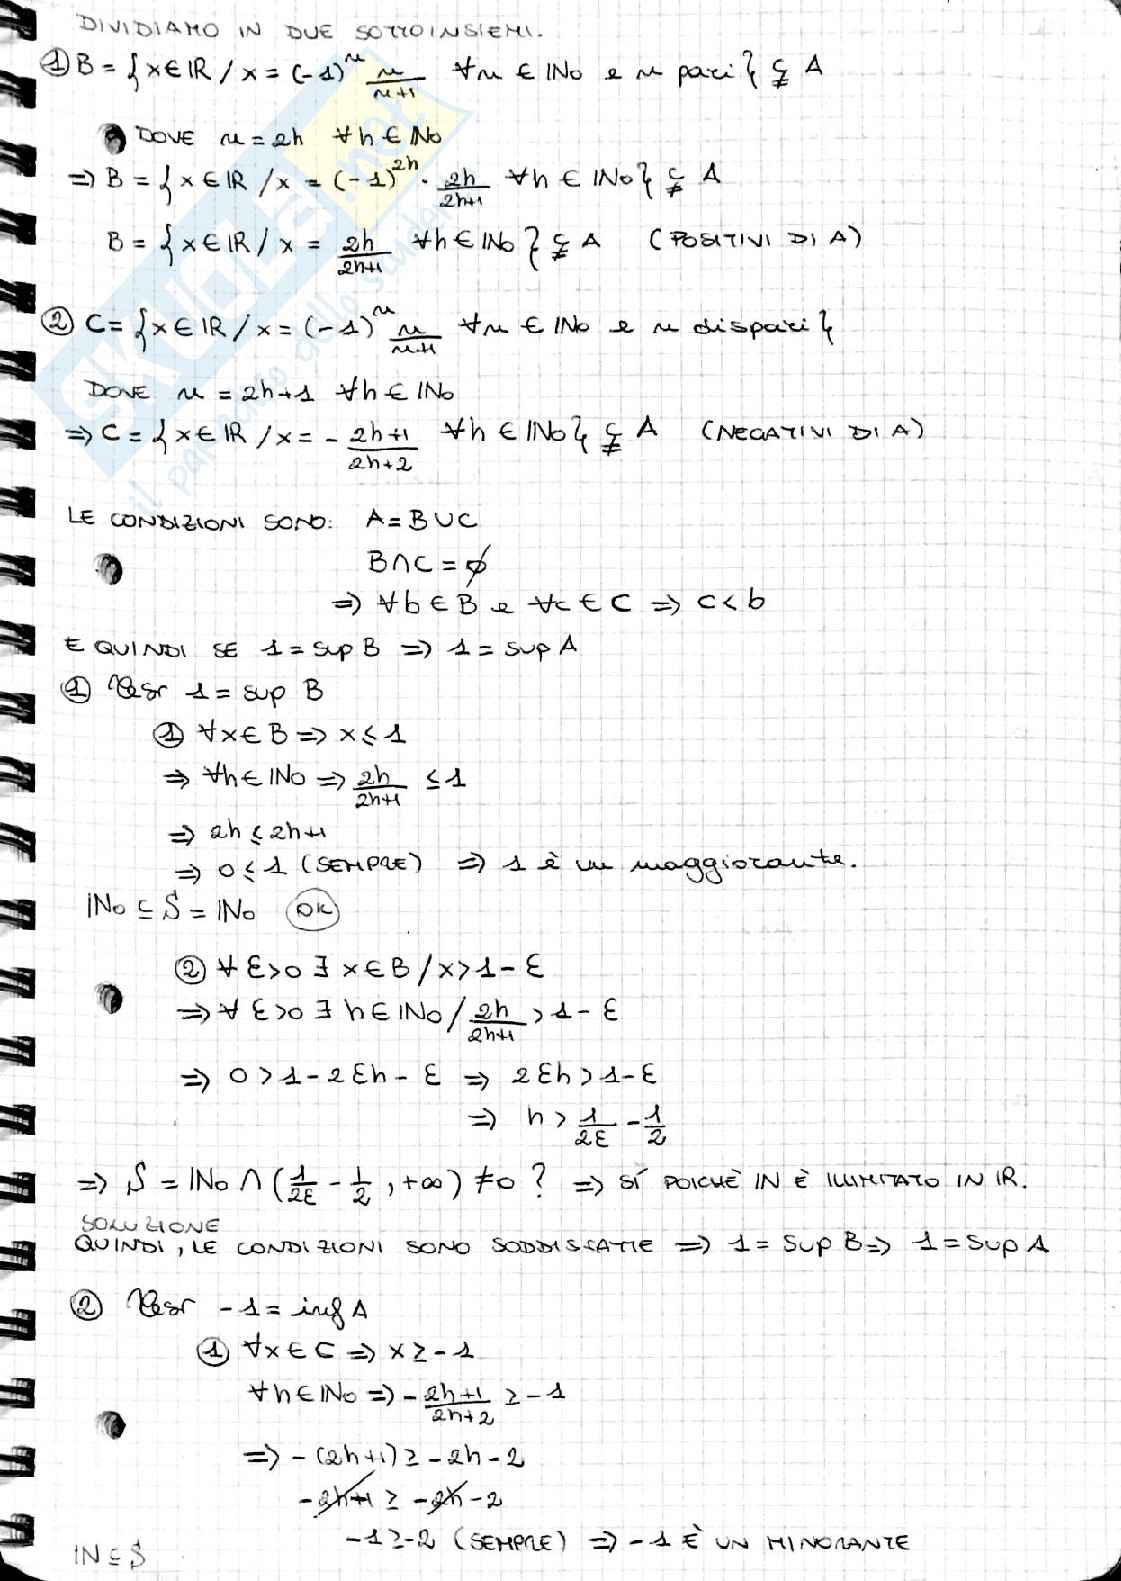 DIVIDIAMO IN DUE SOTTOINSIEMI.
① B = { x ∈ IR / x = (-1)^n n/(n+1) ∀n ∈ INo e n pari } ⊊ A
DOVE n = 2h ∀h ∈ INo
⇒ B = { x ∈ IR / x = (-1)^2h · 2h/(2h+1) ∀h ∈ INo } ⊊ A
B = { x ∈ IR / x = 2h/(2h+1) ∀h ∈ INo } ⊊ A (POSITIVI DI A)
② C = { x ∈ IR / x = (-1)^n n/(n+1) ∀n ∈ INo e n dispari }
DOVE n = 2h+1 ∀h ∈ INo
⇒ C = { x ∈ IR / x = - (2h+1)/(2h+2) ∀h ∈ INo } ⊊ A (NEGATIVI DI A)
LE CONDIZIONI SONO: A = B ∪ C
B ∩ C = ∅
⇒ ∀b ∈ B e ∀c ∈ C ⇒ c < b
E QUINDI SE 1 = sup B ⇒ 1 = sup A
① 1 = sup B
① ∀x ∈ B ⇒ x ≤ 1
⇒ ∀h ∈ INo ⇒ 2h/(2h+1) ≤ 1
⇒ 2h ≤ 2h+1
⇒ 0 ≤ 1 (SEMPRE) ⇒ 1 è un maggiorante.
INo ⊆ S = INo OK
② ∀ ε>0 ∃ x ∈ B / x > 1 - ε
⇒ ∀ ε>0 ∃ h ∈ INo / 2h/(2h+1) > 1 - ε
⇒ 0 > 1 - 2εh - ε ⇒ 2εh > 1 - ε
⇒ h > 1/2ε - 1/2
⇒ S = INo ∩ (1/2ε - 1/2, +∞) ≠ 0 ? ⇒ SÍ POICHÈ IN È ILLIMITATO IN IR.
SOLUZIONE
QUINDI, LE CONDIZIONI SONO SODDISFATTE ⇒ 1 = Sup B ⇒ 1 = Sup A
② -1 = inf A
① ∀x ∈ C ⇒ x ≥ -1
∀h ∈ INo ⇒ - (2h+1)/(2h+2) ≥ -1
⇒ - (2h+1) ≥ -2h - 2
-2h+1 ≥ -2h - 2
-1 ≥ -2 (SEMPRE) ⇒ -1 È UN MINORANTE
IN ⊆ S